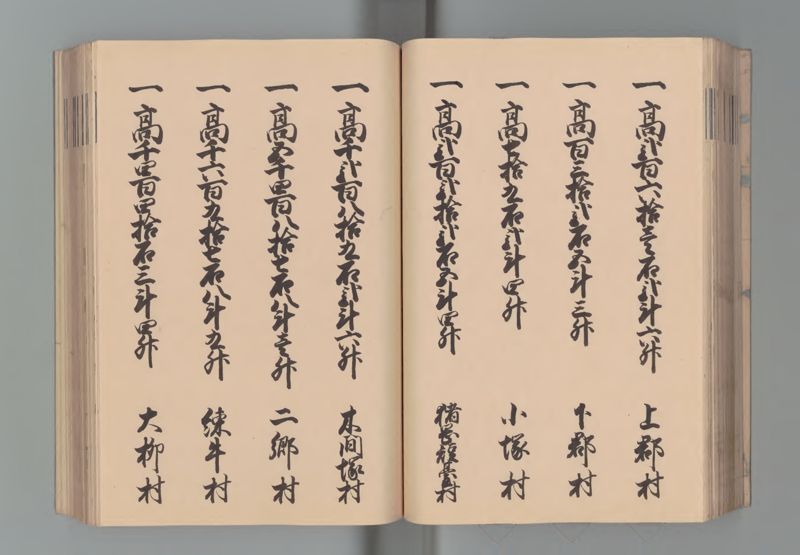 一高弐百六拾壱石弐斗六升 上郡村
一高百三拾弐石五斗三升 下郡村
一高七拾九石弐斗四升 小塚村
一高弐百弐拾弐石五斗四升 猪岡短台村
一高千弐百八拾九石弐斗六升 木間塚村
一高五千四百八拾七石八斗壱升 二郷村
一高千六百九拾七石八斗九升 練牛村
一高千四百四拾石三斗四升 大柳村